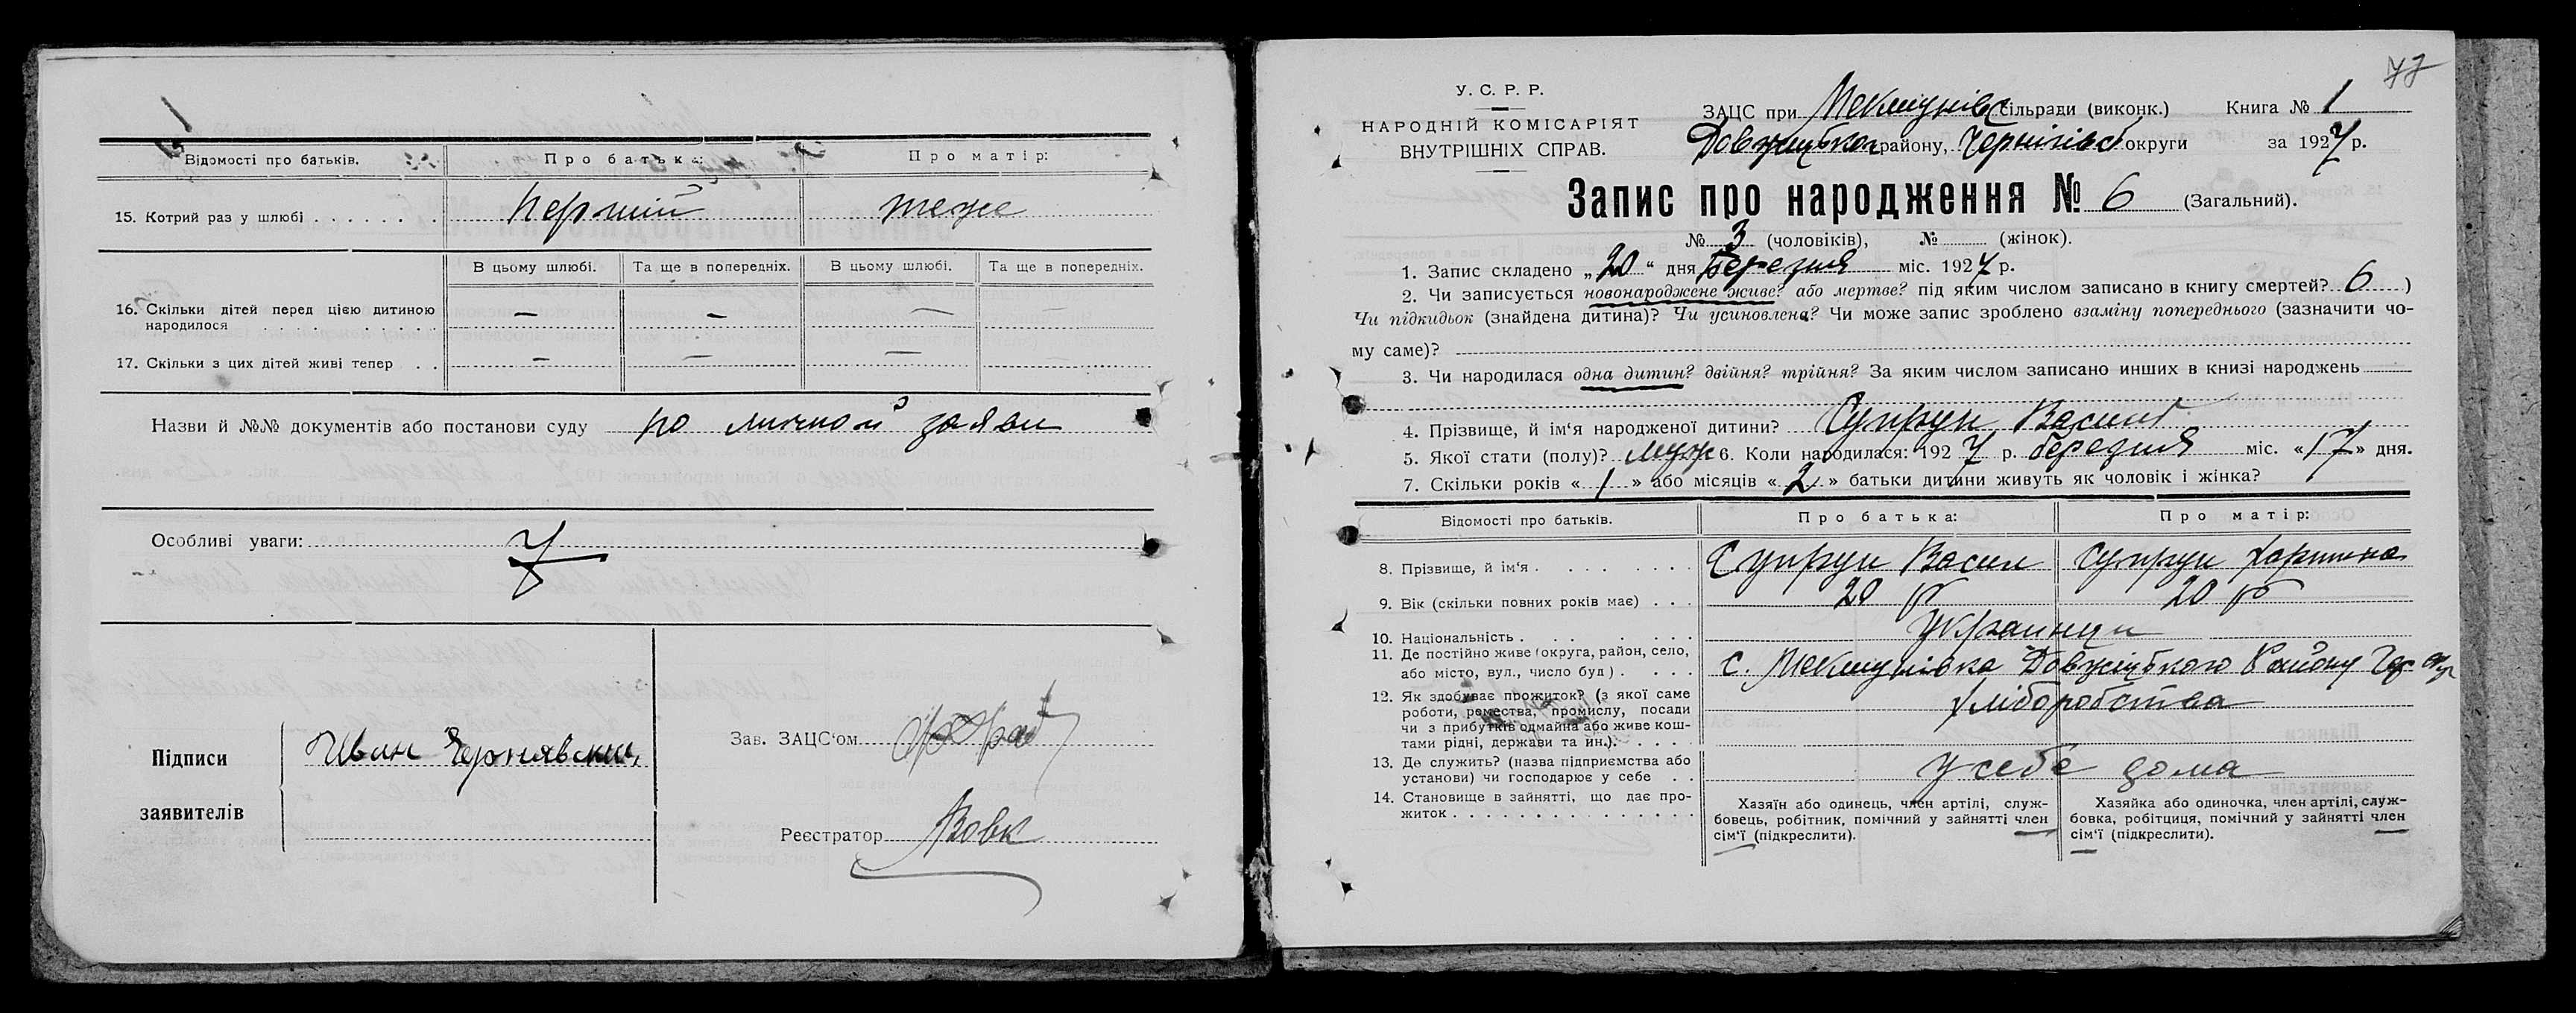 Відомості про батьків. Про батька: Про матір:
15. Котрий раз у шлюбі . . . . . . . Перший теже
В цьому шлюбі. Та ще в попередніх. В цьому шлюбі. Та ще в попередніх.
16. Скільки дітей перед цією дитиною
народилося . . . . . . . . . — — — —
17. Скільки з цих дітей живі тепер . . — — — —
Назви й №№ документів або постанови суду по личной заяви
Особливі уваги:
Підписи
заявителів
Иван Чернявский
Зав. ЗАЦС'ом
Реєстратор Вовк
77
У. С. Р. Р.
НАРОДНІЙ КОМІСАРІЯТ
ВНУТРІШНІХ СПРАВ.
ЗАЦС при сільради (виконк.) Книга № 1
району, Чернігівс округи за 1927 р.
Запис про народження № 6 (Загальний).
№ 3 (чоловіків), № (жінок).
1. Запис складено „20“ дня березня міс. 1927 р.
2. Чи записується новонароджене живе? або мертве? під яким числом записано в книгу смертей? 6 )
Чи підкидьок (знайдена дитина)? Чи усиновлена? Чи може запис зроблено взаміну попереднього (зазначити чо-
му саме)?
3. Чи народилася одна дитин? двійня? трійня? За яким числом записано инших в книзі народжень
4. Прізвище, й ім‘я народженої дитини? Супрун Василь
5. Якої стати (полу)? муж 6. Коли народилася: 1927 р. березня міс. «17» дня.
7. Скільки років «1» або місяців «2» батьки дитини живуть як чоловік і жінка?
Відомості про батьків. Про батька: Про матір:
8. Прізвище, й ім‘я . . . . . . . Супрун Васил Супрун
9. Вік (скільки повних років має) . . . 20 р 20 р
10. Національність . . . . . . . Украинци
11. Де постійно живе (округа, район, село,
або місто, вул., число буд) . . . . с. Району
12. Як здобуває прожиток? (з якої саме
роботи, ремества, промислу, посади
чи з прибутків одмайна або живе кош-
тами рідні, держави та ин.). . . . . хліборобства
13. Де служить? (назва підприємства або
установи) чи господарює у себе . . у себе дома
14. Становище в зайнятті, що дає про-
житок . . . . . . . . . . . . . . .
Хазяїн або одинець, член артілі, служ-
бовець, робітник, помічний у зайнятті член
сім'ї (підкреслити).
Хазяйка або одиночка, член артілі, служ-
бовка, робітциця, помічний у зайнятті член
сім'ї (підкреслити).